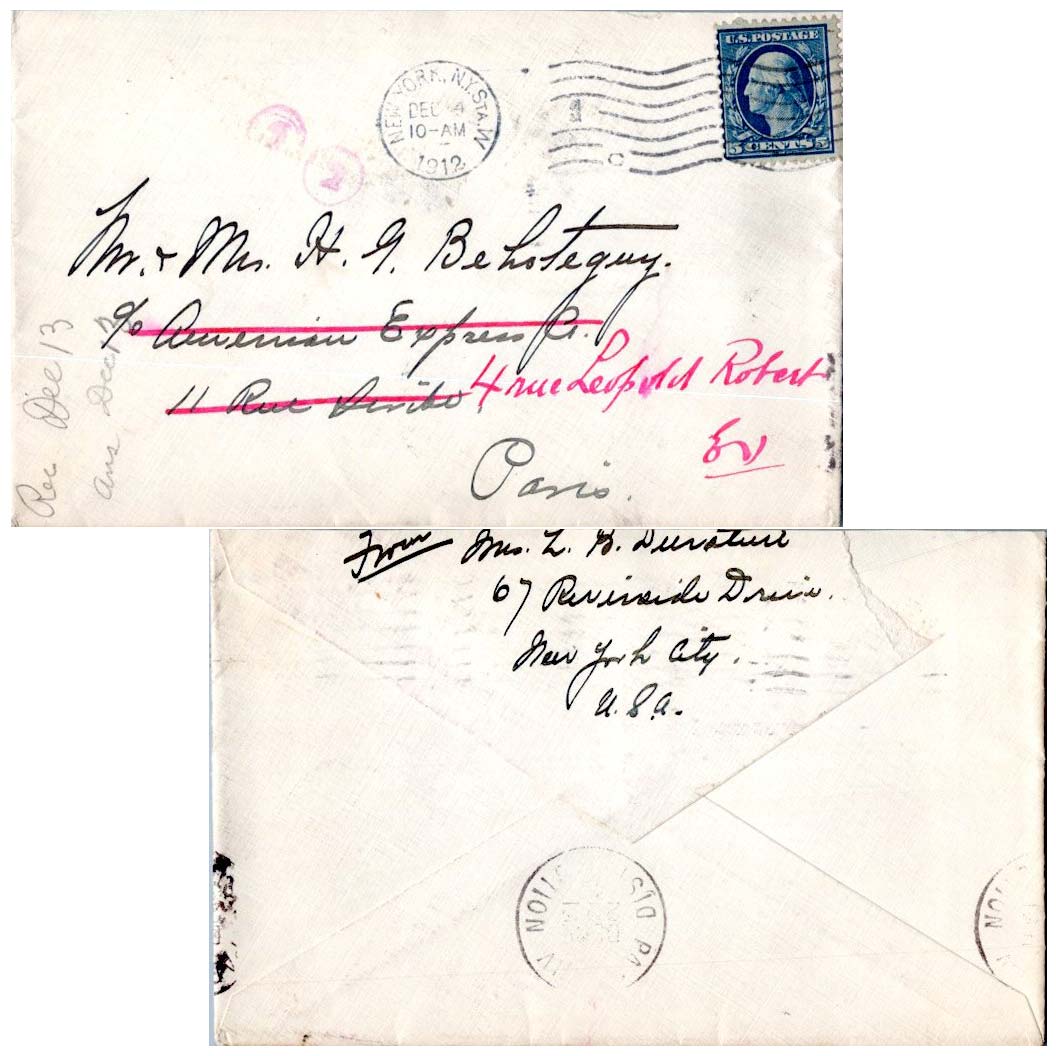 U.S. POSTAGE
5 CENTS 5
NEW YORK, N.Y. STA. W
DEC 4
10-AM
1912
1
C
1
2
Mr. & Mrs. H. G. Behoteguy.
c/o American Express Co.
11 Rue Scribe
4 rue Leopold Robert
Ev
Paris.
Rec Dec 13
Ans Dec
From Mrs. L. B.
67 Riverside Drive.
New York City.
U.S.A.
DIST
TION